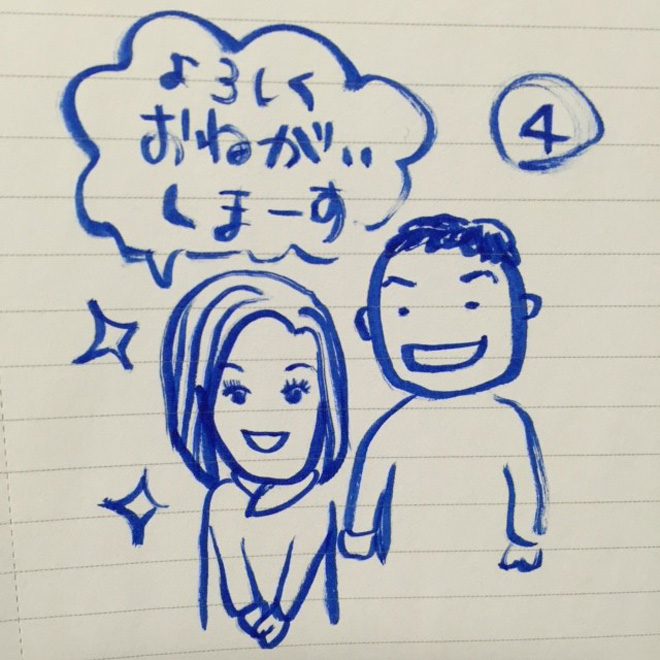 よろしく
おねがい
しまーす
4